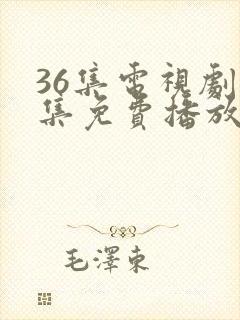 36集電視劇
集免費播放
毛澤東